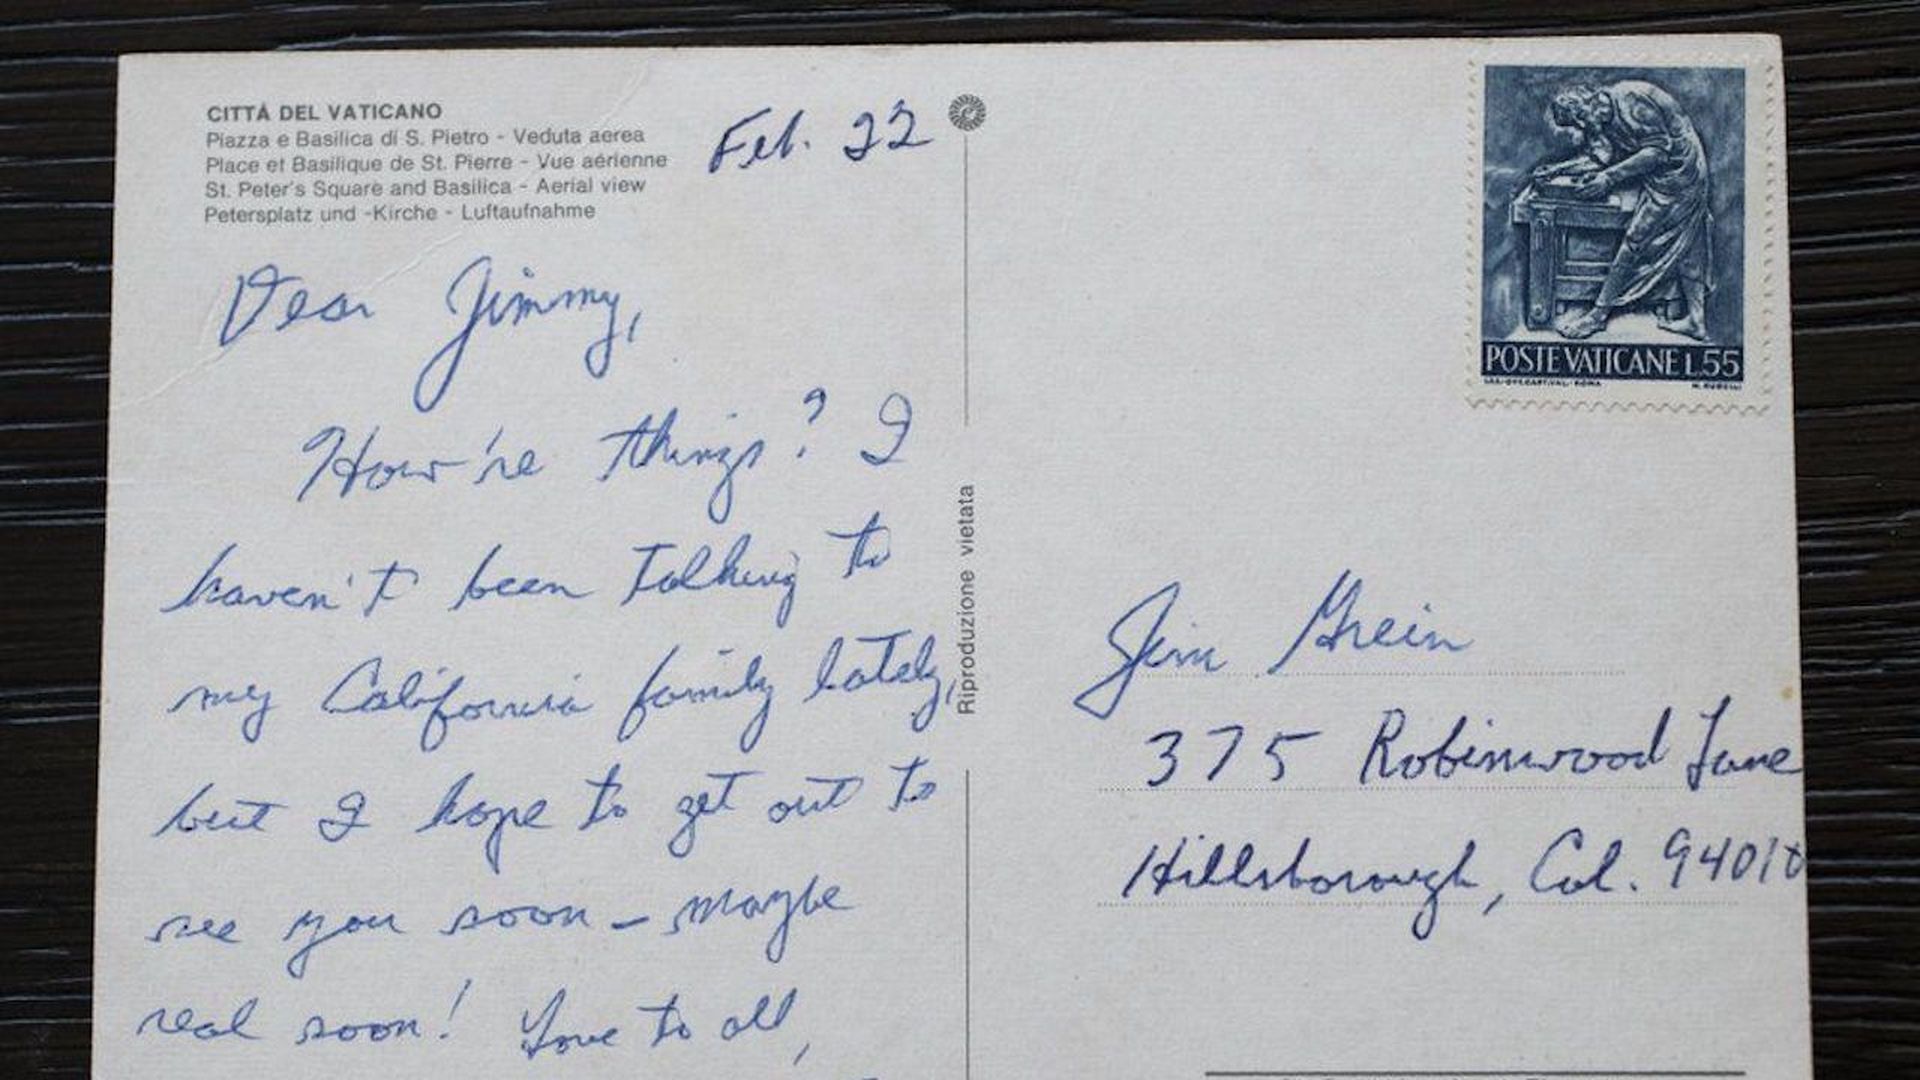 CITTÀ DEL VATICANO
Piazza e Basilica di S. Pietro - Veduta aerea
Place et Basilique de St. Pierre - Vue aérienne
St. Peter's Square and Basilica - Aerial view
Petersplatz und -Kirche - Luftaufnahme
Feb. 22
Dear Jimmy,
How're things? I
haven't been talking to
my California family lately,
but I hope to get out to
see you soon - maybe
real soon! Love to all,
Riproduzione vietata
POSTE VATICANE L.55
Jim Grein
375 Robinwood Lane
Hillsborough, Cal. 94010